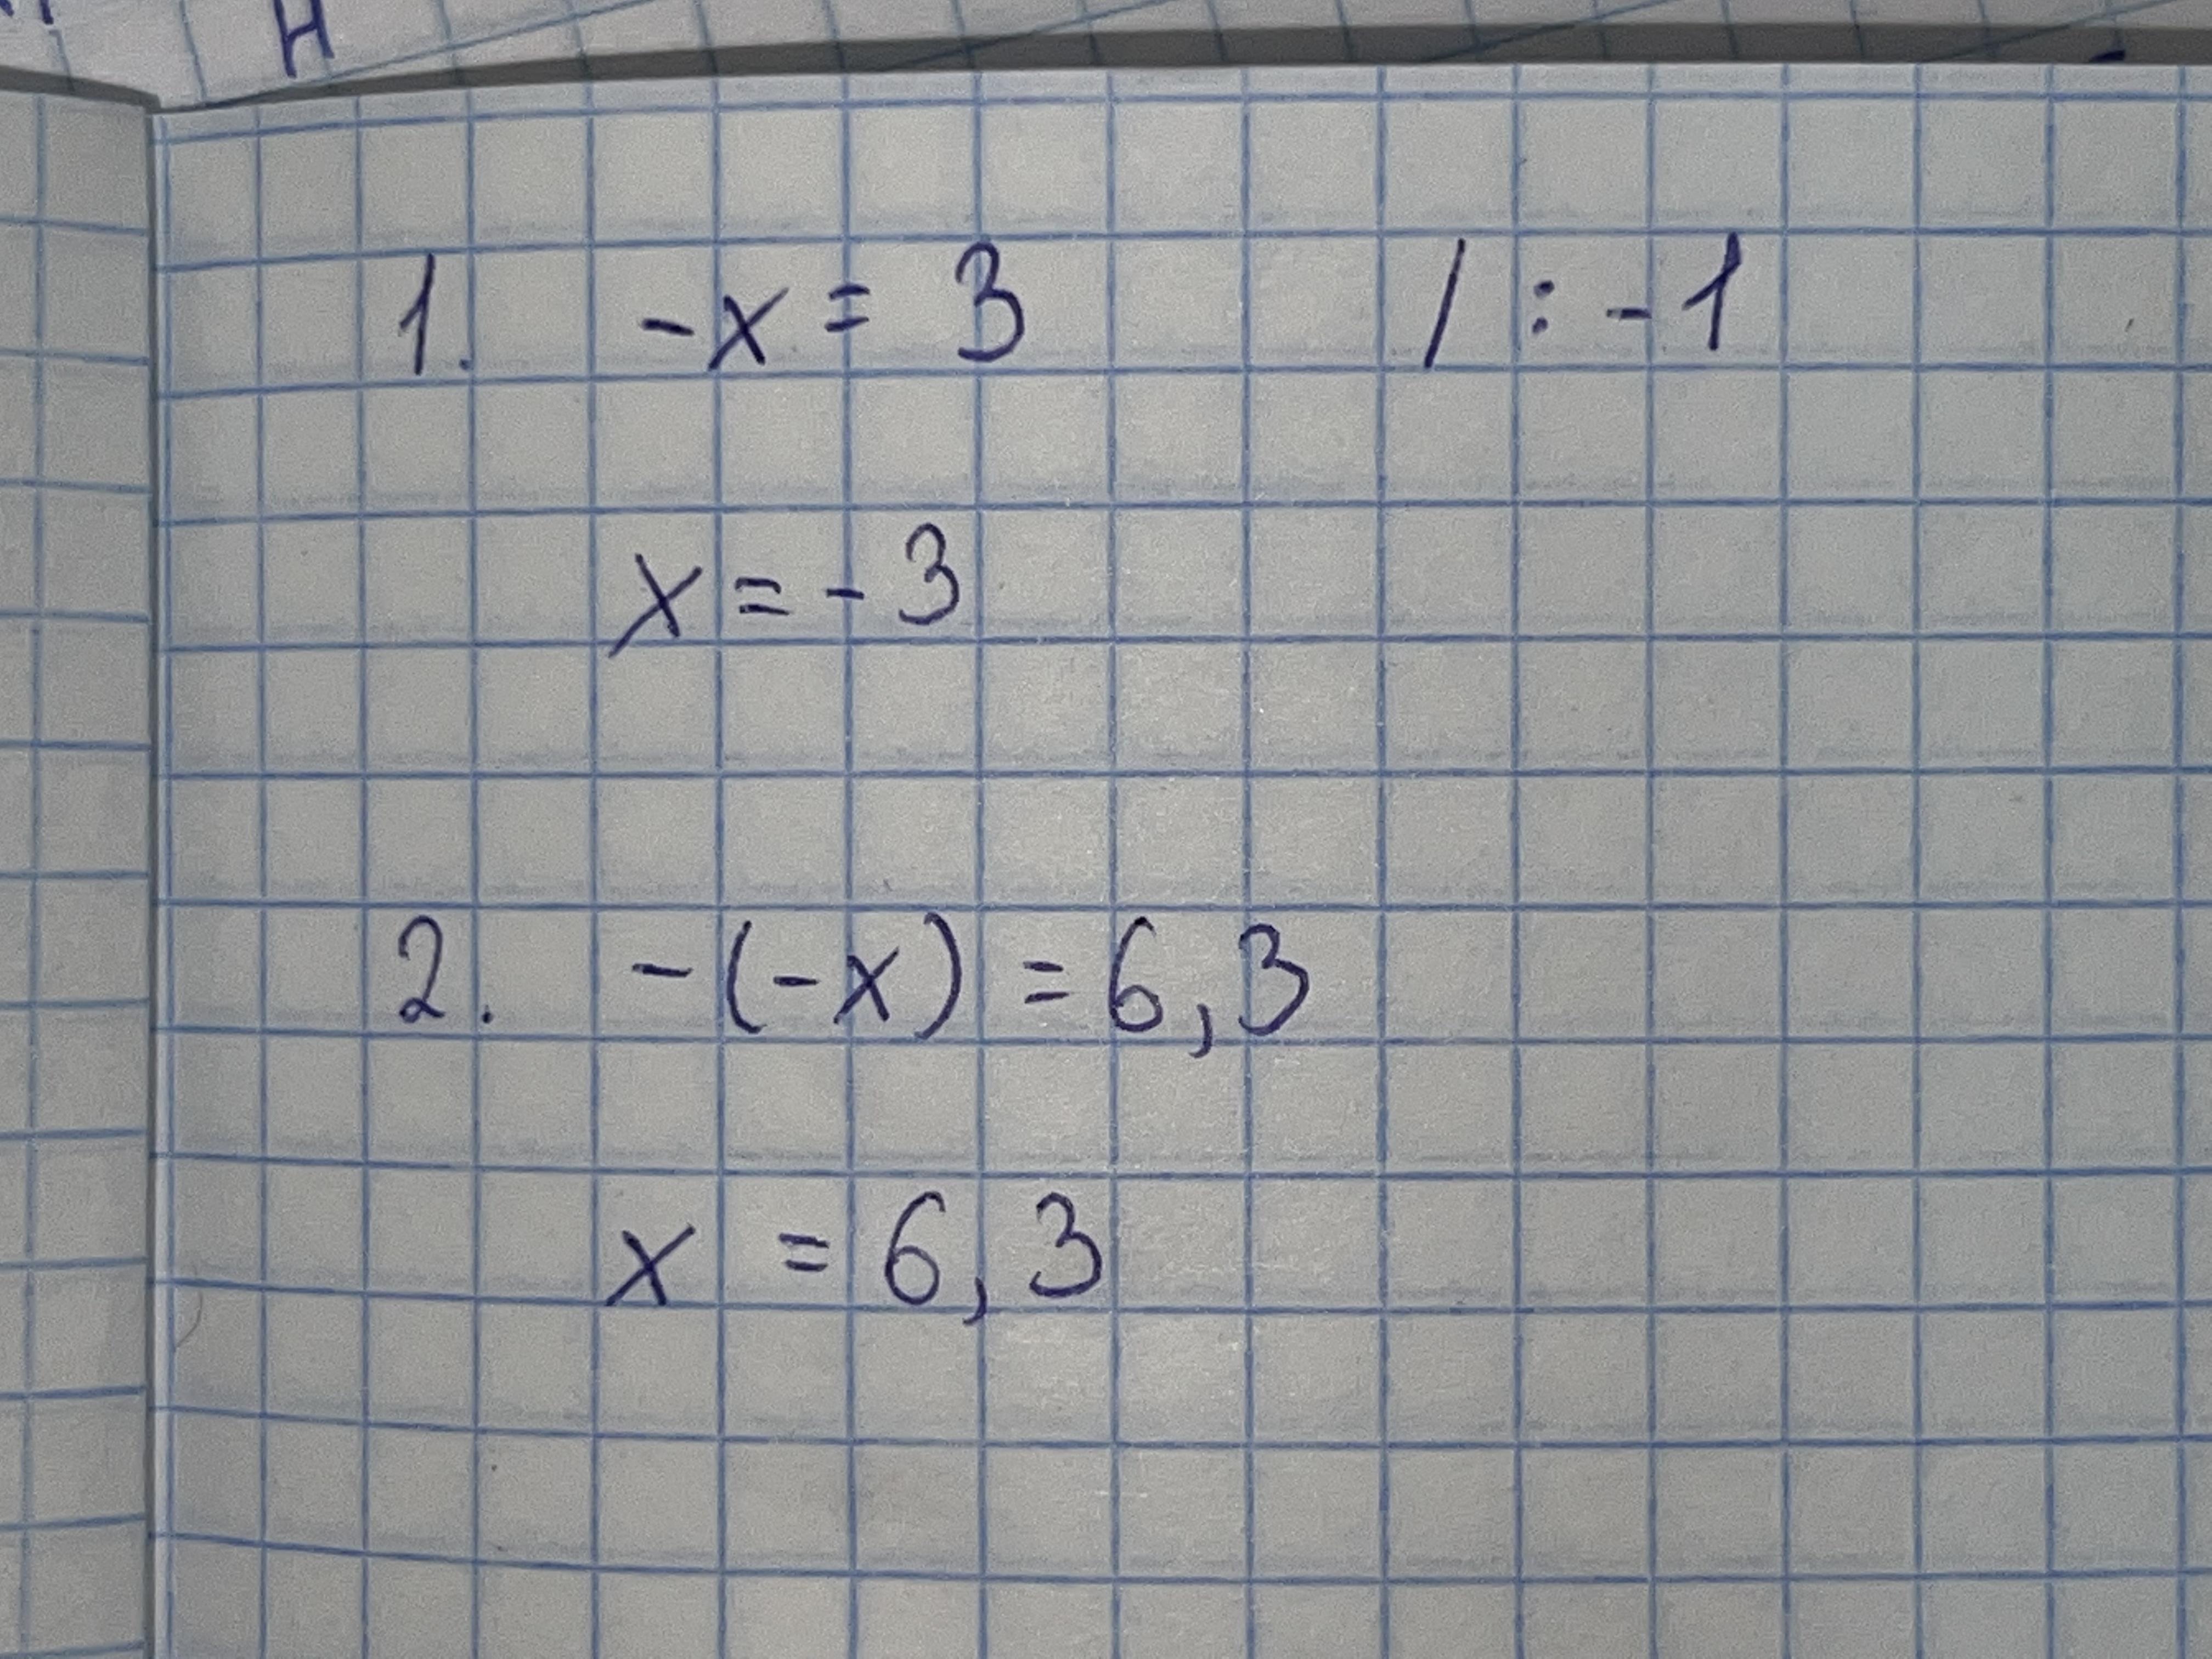 1. -x = 3 / : -1
x = -3
2. -(-x) = 6,3
x = 6,3